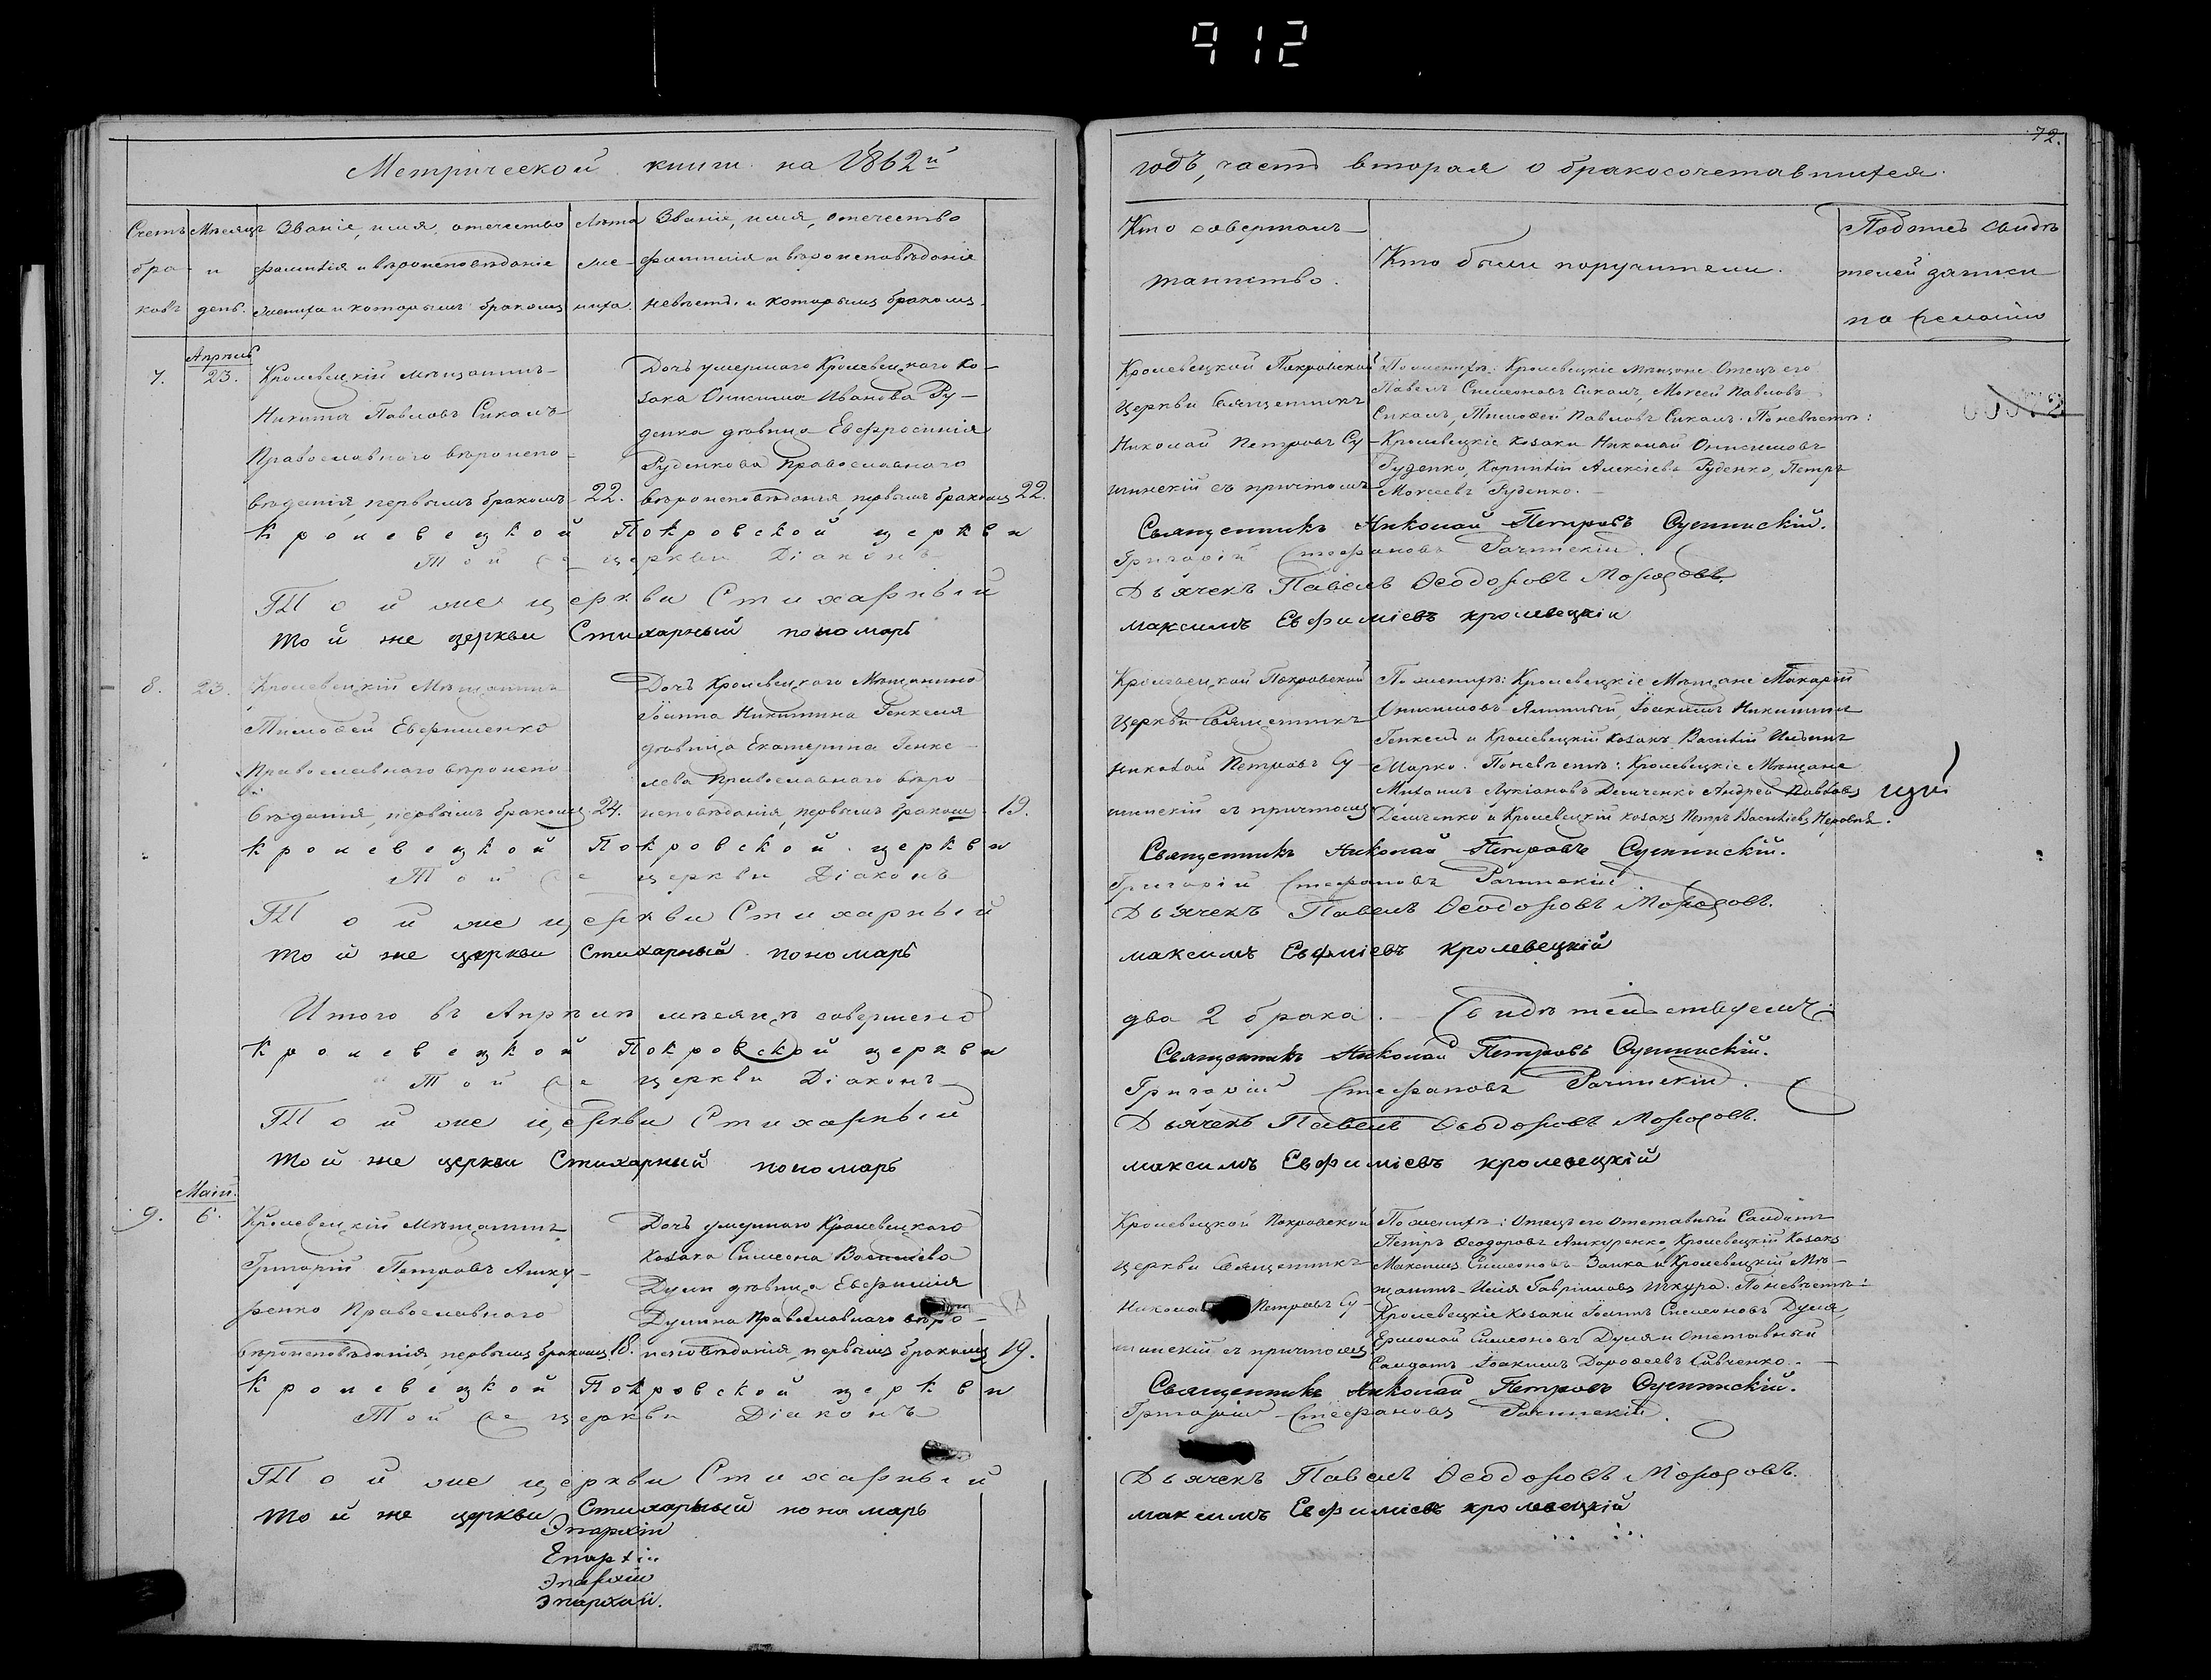 912
72.
Метрической книги на 1862й
годъ, часть вторая о бракосочетавшихся.
Счетъ браковъ
Мѣсяцъ и день.
Званіе, имя, отечество
фамилія и вѣроисповѣданіе
жениха и которымъ бракомъ
Лѣта жениха.
Званіе, имя, отечество
фамилія и вѣроисповѣданіе
невѣсты и которымъ бракомъ.
Кто совершалъ
таинство.
Кто были поручители.
Подпись свидѣ
телей записи
по желанію
7.
Апрѣль
23.
Кролевецкій мѣщанинъ
Никита Павловъ Сикалъ
Православнаго вѣроиспо-
вѣданія, первымъ бракомъ
22.
Дочь умершаго Кролевецкаго Ко-
зака Онисима Иванова Ру-
денка дѣвица Евфросинія
Руденкова православнаго
вѣроисповѣданія, первымъ бракомъ
22.
Кролевецкой Покровской
Церкви Священникъ
Николай Петровъ Су-
шинскій съ причтомъ
По женихѣ: Кролевецкіе мѣщане Отецъ его
Павелъ Симеоновъ Сикалъ, Моисей Павловъ
Сикалъ, Тимофей Павловъ Сикалъ. По невѣстѣ:
Кролевецкіе козаки Николай Онисимовъ
Руденко, Корнилій Алексіевъ Руденко, Петръ
Моисеевъ Руденко.
Кролевецкой Покровской церкви Священникъ Николай Петровъ Сушинскій.
Той же церкви Діаконъ Григорій Стефановъ Рачинскій.
Той же церкви Стихарный Дьячекъ Павелъ Ѳеодоровъ Морозовъ.
той же церкви Стихарный пономарь максимъ Евфиміевъ кролевецкій
8.
23.
Кролевецкій Мѣщанинъ
Тимофей Евфименко
Православнаго вѣроиспо
вѣданія, первымъ бракомъ
24.
Дочь Кролевецкаго Мѣщанина
Іоанна Никитина Генкеля
дѣвица Екатерина Генке-
лева Православнаго вѣро
исповѣданія, первымъ бракомъ
19.
Кролевецкой Покровской
Церкви Священникъ
Николай Петровъ Су-
шинскій съ причтомъ
По женихѣ: Кролевецкіе Мѣщане Макарій
Онисимовъ Іоакимъ Никитинъ
Генкель и Кролевецкій козакъ Василій
Марко. По невѣстѣ: Кролевецкіе Мѣщане
Михаилъ Лукіановъ Демченко Андрей Павловъ
Демченко и Кролевецкій козакъ Петръ Василіевъ
Кролевецкой Покровской церкви Священникъ Николай Петровъ Сушинскій.
Той же церкви Діаконъ Григорій Стефановъ Рачинскій
Той же церкви Стихарный Дьячекъ Павелъ Ѳеодоровъ Морозовъ.
той же церкви стихарный пономарь максимъ Евфміевъ кролевецкій
Итого въ Апрѣлѣ мѣсяцѣ совершено два 2 брака. Свидѣтельствуемъ:
Кролевецкой Покровской церкви Священникъ Николай Петровъ Сушинскій.
Той же церкви Діаконъ Григорій Стефановъ Рачинскій.
Той же церкви Стихарный Дьячекъ Павелъ Ѳеодоровъ Морозовъ.
той же церкви Стихарный пономарь максимъ Евфиміевъ кролевецкій
9.
Маій.
6.
Кролевецкій мѣщанинъ
Григорій Петровъ Ашку-
ренко Православнаго
вѣроисповѣданія, первымъ бракомъ
18.
Дочь умершаго Кролевецкаго
козака Симеона Василіева
Дули дѣвица Евфимія
Дулина Православнаго вѣро-
исповѣданія, первымъ бракомъ
19.
Кролевецкой Покровской
церкви Священникъ
Николай Петровъ Су-
шинскій съ причтомъ
По женихѣ: Отецъ его отставный Салдатъ
Петръ Ѳеодоровъ Ашкуренко, Кролевецкій козакъ
Максимъ Симеоновъ Заика и Кролевецкій Мѣ-
щанинъ Илія Гавріиловъ Шкура. По невѣстѣ:
Кролевецкіе козаки Іоаннъ Симеоновъ Дуля,
Ермолай Симеоновъ Дуля и отставный
Салдатъ Іоакимъ Дорофеевъ Савченко.
Кролевецкой Покровской церкви Священникъ Николай Петровъ Сушинскій.
Той же церкви Діаконъ Григорій Стефановъ Рачинскій.
Той же церкви Стихарный Дьячекъ Павелъ Ѳеодоровъ Морозовъ.
той же церкви Стихарный пономарь максимъ Евфиміевъ кролевецкій
Эпархіи
Епархіи
Эпархіи
Эпархіи.